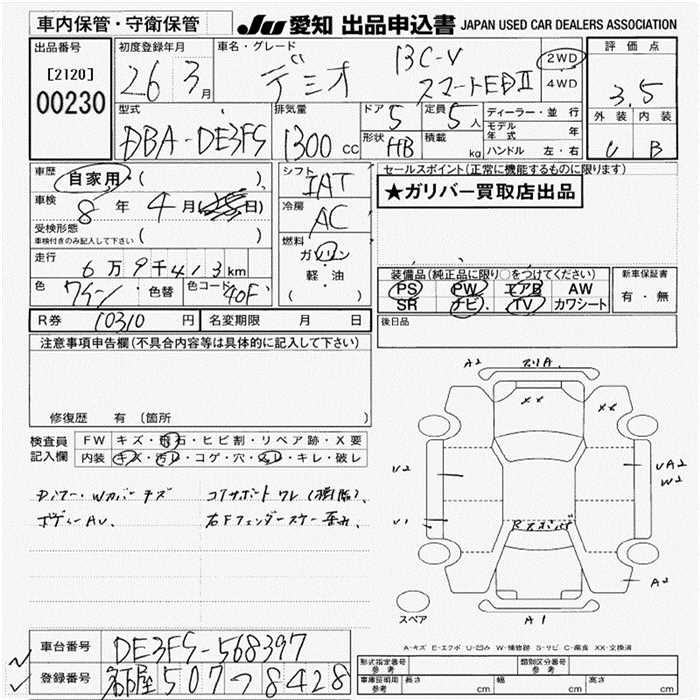 車内保管・守衛保管
JU 愛知 出品申込書 JAPAN USED CAR DEALERS ASSOCIATION
出品番号
[2120]
00230
初度登録年月
26 3月
車名・グレード
デミオ
13C-V
スマートEDⅡ
2WD
4WD
評価点
3.5
外装 内装
C B
型式
DBA-DE3FS
排気量
1300 cc
ドア 5
定員 5人
形状 HB
積載 kg
ディーラー・並行
モデル年式 年
ハンドル 左・右
車歴 自家用・( )
車検 8年 4月 日)
受検形態
車検付きのみ記入して下さい ( )
走行
6万9千413km
色 ワイン ・色替 色コード 40F
シフト
IAT
冷房
AC
燃料
ガソリン
・
軽・油
( )
セールスポイント(正常に機能するものに限ります)
★ガリバー買取店出品
装備品(純正品に限り○をつけてください)
PS PW エアB AW
SR ナビ TV カワシート
新車保証書
有・無
後日品
R券 10310 円 名変期限 月 日
注意事項申告欄(不具合内容等は具体的に記入して下さい)
修復歴 有(箇所
検査員
記入欄
FW キズ・飛石・ヒビ割・リペア跡・X要
内装 キズ・汚レ・コゲ・穴・スレ・キレ・破レ
コアサポート ワレ(樹脂)、
ボディーAU、
右Fフェンダーステー歪み、
A2
XX
XX
U2
UA2
W2
U1
A2
A1
スペア
A-キズ E-エクボ U-凹み W-補修跡 S-サビ C-腐食 XX-交換済
車台番号 DE3FS-568397
登録番号 名古屋 507 つ 8428
形式指定番号
参考
類別区分番号
参考
車庫証明用
参考
長さ cm 幅 cm 高さ cm